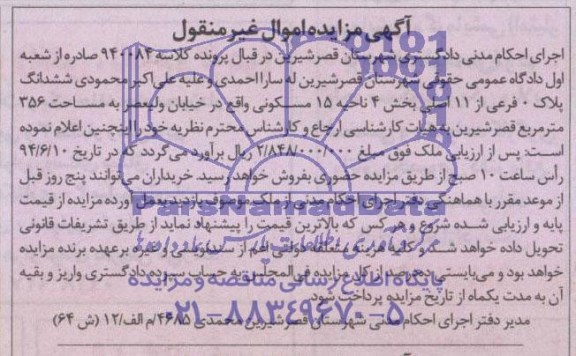 آگهی مزایده اموال غیر منقول
اجرای احکام مدنی دادگستری شهرستان قصرشیرین در قبال پرونده کلاسه ۹۴۰۰۸۴ صادره از شعبه
اول دادگاه عمومی حقوقی شهرستان قصرشیرین له سارا احمدی و علیه علی اکبر محمودی ششدانگ
پلاک ۰ فرعی از ۱۱ اصلی بخش ۴ ناحیه ۱۵ مسکونی واقع در خیابان ولیعصر به مساحت ۳۵۶
مترمربع قصرشیرین به هیات کارشناسی ارجاع و کارشناس محترم نظریه خود را اینچنین اعلام نموده
است: پس از ارزیابی ملک فوق مبلغ ۲/۸۴۸/۰۰۰/۰۰۰ ریال برآورد می گردد که در تاریخ ۹۴/۶/۱۰
رأس ساعت ۱۰ صبح از طریق مزایده حضوری بفروش خواهد رسید. خریداران می توانند پنج روز قبل
از موعد مقرر با هماهنگی دفتر اجرای احکام مدنی از ملک موصوف بازدید بعمل آورده مزایده از قیمت
پایه و ارزیابی شده شروع و هر کس که بالاترین قیمت را پیشنهاد نماید از طریق تشریفات قانونی
تحویل داده خواهد شد و کلیه هزینه متعلقه قولنی اعم از سند نویسی و غیره برعهده برنده مزایده
خواهد بود و می بایستی ده درصد از کل مزایده فی المجلس به حساب سپرده دادگستری واریز و بقیه
آن به مدت یکماه از تاریخ مزایده پرداخت شود
مدیر دفتر اجرای احکام مدنی شهرستان قصرشیرین محمدی ۴۶۸۵/م الف/۱۲ (ش ۶۴)
ParsNamadData
پایگاه اطلاع رسانی مناقصه و مزایده
۰۲۱-۸۸۳۴۹۶۷۰-۵